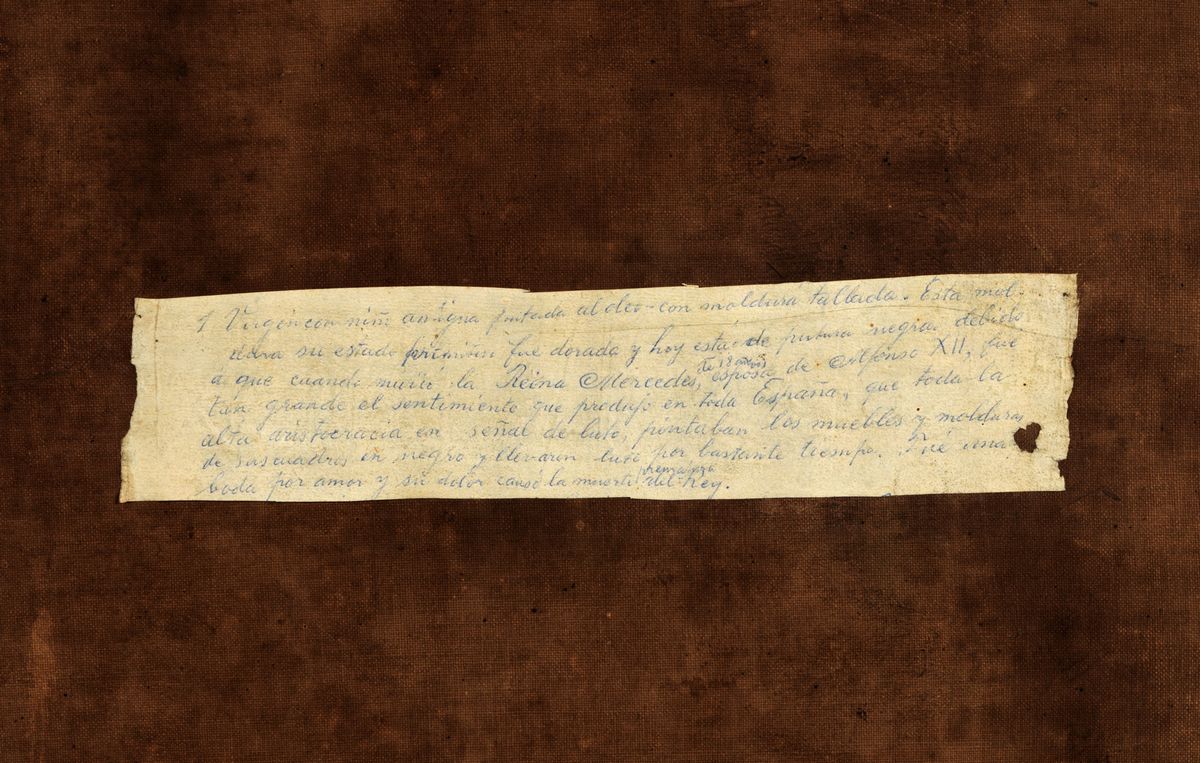 1 Virgen con niñ antigua pintada al oleo - con moldura tallada. Esta mol-
dura su estado fue dorada y hoy está de pintura negra debido
a que cuando murió la Reina Mercedes, de 18 años esposa de Alfonso XII, fue
tan grande el sentimiento que produjo en toda España, que toda la
alta aristocracia en señal de luto, pintaban los muebles y molduras
de sus cuadros en negro y llevaron luto por bastante tiempo. Fué una
boda por amor y su dolor causó la muerte prematura del Rey.